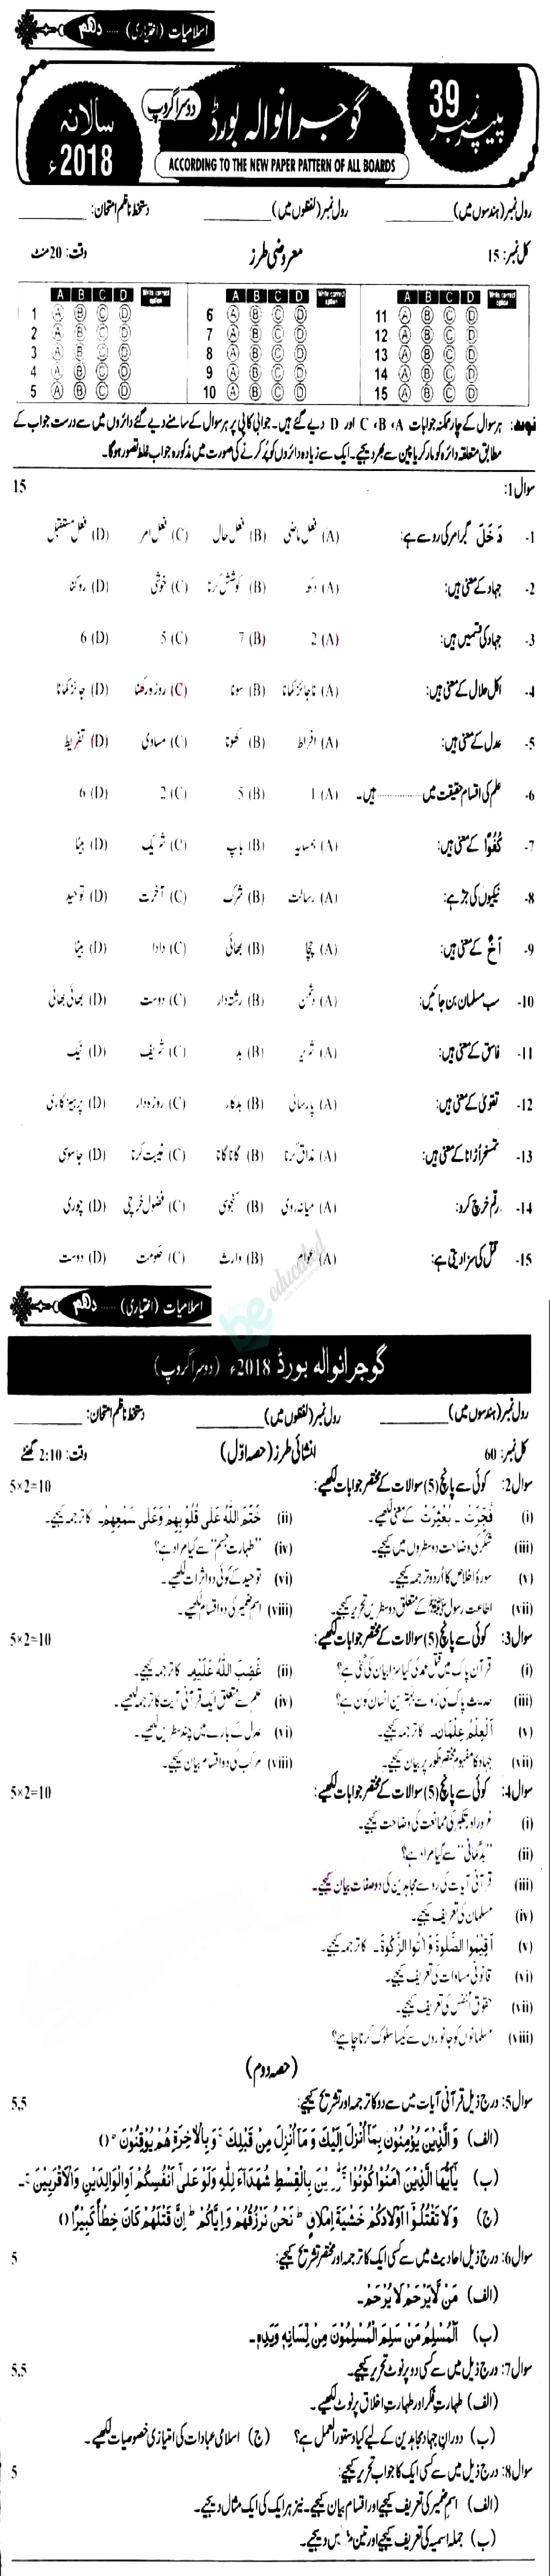 اسلامیات (اختیاری) ..... دھم
پیپر نمبر 39
گوجرانوالہ بورڈ
دوسرا گروپ
سالانہ 2018ء
ACCORDING TO THE NEW PAPER PATTERN OF ALL BOARDS
رول نمبر (ہندسوں میں) ________ رول نمبر (لفظوں میں) ________ دستخط ناظم امتحان: ________
کل نمبر: 15 معروضی طرز وقت: 20 منٹ
A B C D Write correct option A B C D Write correct option A B C D Write correct option
1 A B C D 6 A B C D 11 A B C D
2 A B C D 7 A B C D 12 A B C D
3 A B C D 8 A B C D 13 A B C D
4 A B C D 9 A B C D 14 A B C D
5 A B C D 10 A B C D 15 A B C D
نوٹ: ہر سوال کے چار ممکنہ جوابات A، B، C اور D دیے گئے ہیں۔ جوابی کاپی پر ہر سوال کے سامنے دیے گئے دائروں میں سے درست جواب کے
مطابق متعلقہ دائرہ کو مارکر یا پین سے بھر دیجیے۔ ایک سے زیادہ دائروں کو پُر کرنے کی صورت میں مذکورہ جواب غلط تصور ہوگا۔
سوال 1: 15
1- دَخَلَ گرامر کی رو سے ہے: (A) فعل ماضی (B) فعل حال (C) فعل امر (D) فعل مستقبل
2- جہاد کے معنی ہیں: (A) دکھ (B) کوشش کرنا (C) خوشی (D) روکنا
3- جہاد کی قسمیں ہیں: (A) 2 (B) 7 (C) 5 (D) 6
4- اکل حلال کے معنی ہیں: (A) ناجائز کمانا (B) سونا (C) روزہ رکھنا (D) جائز کمانا
5- عدل کے معنی ہیں: (A) افراط (B) کھونا (C) مساوی (D) تفریط
6- علم کی اقسام حقیقت میں ............ ہیں۔ (A) 1 (B) 5 (C) 2 (D) 6
7- كُفُوًا کے معنی ہیں: (A) ہمسایہ (B) باپ (C) شریک (D) بیٹا
8- نیکیوں کی جڑ ہے: (A) رسالت (B) شرک (C) آخرت (D) توحید
9- اَخٌ کے معنی ہیں: (A) چچا (B) بھائی (C) دادا (D) بیٹا
10- سب مسلمان بن جائیں: (A) دشمن (B) رشتہ دار (C) دوست (D) بھائی بھائی
11- فاسق کے معنی ہیں: (A) شریر (B) بد (C) شریف (D) نیک
12- تقویٰ کے معنی ہیں: (A) پارسائی (B) بدکار (C) روزہ دار (D) پرہیزگاری
13- تمسخر اُڑانا کے معنی ہیں: (A) مذاق کرنا (B) گانا گانا (C) غیبت کرنا (D) جاسوسی
14- رقم خرچ کرو: (A) میانہ روی (B) کنجوسی (C) فضول خرچی (D) چوری
15- قتل کی سزا دیتی ہے: (A) عوام (B) وارث (C) حکومت (D) دوست
be educated
اسلامیات (اختیاری) ..... دھم
گوجرانوالہ بورڈ 2018ء (دوسرا گروپ)
رول نمبر (ہندسوں میں) ________ رول نمبر (لفظوں میں) ________ دستخط ناظم امتحان: ________
کل نمبر: 60 انشائی طرز (حصہ اوّل) وقت: 2:10 گھنٹے
سوال 2: کوئی سے پانچ (5) سوالات کے مختصر جوابات لکھیے: 5×2=10
(i) فُجِّرَتْ ۔ بُعْثِرَتْ کے معنی لکھیے۔ (ii) خَتَمَ اللّٰهُ عَلٰى قُلُوْبِهِمْ وَعَلٰى سَمْعِهِمْ۔ کا ترجمہ کیجیے۔
(iii) شکر کی وضاحت دو سطروں میں کیجیے۔ (iv) ”طہارت جسم“ سے کیا مراد ہے؟
(v) سورۂ اخلاص کا اُردو ترجمہ کیجیے۔ (vi) توحید کے کوئی دو اثرات لکھیے۔
(vii) اطاعت رسول ﷺ کے متعلق دو سطریں تحریر کیجیے۔ (viii) اسم ضمیر کی دو اقسام لکھیے۔
سوال 3: کوئی سے پانچ (5) سوالات کے مختصر جوابات لکھیے: 5×2=10
(i) قرآن پاک میں قتل عمد کی کیا سزا بیان کی گئی ہے؟ (ii) غَضِبَ اللّٰهُ عَلَيْهِ۔ کا ترجمہ کیجیے۔
(iii) حدیث پاک کی رُو سے بہترین انسان کون ہے؟ (iv) علم سے متعلق ایک قرآنی آیت کا ترجمہ لکھیے۔
(v) اَلْعِلْمُ عِلْمَانِ۔ کا ترجمہ کیجیے۔ (vi) عدل کے بارے میں چند سطریں لکھیے۔
(vii) جہاد کا مفہوم مختصر طور پر بیان کیجیے۔ (viii) مرکب کی دو اقسام بیان کیجیے۔
سوال 4: کوئی سے پانچ (5) سوالات کے مختصر جوابات لکھیے: 5×2=10
(i) غرور اور تکبر کی ممانعت کی وضاحت کیجیے۔
(ii) ”بدگمانی“ سے کیا مراد ہے؟
(iii) قرآنی آیات کی رو سے مجاہدین کی دو صفات بیان کیجیے۔
(iv) مسلمان کی تعریف کیجیے۔
(v) اَقِيْمُوا الصَّلٰوةَ وَاٰتُوا الزَّكٰوةَ۔ کا ترجمہ کیجیے۔
(vi) قانونی مساوات کی تعریف کیجیے۔
(vii) حقوق النفس کی تعریف کیجیے۔
(viii) مسلمانوں کو جانوروں سے کیسا سلوک کرنا چاہیے؟
(حصہ دوم)
سوال 5: درج ذیل قرآنی آیات میں سے دو کا ترجمہ اور تشریح کیجیے: 5,5
(الف) وَالَّذِيْنَ يُؤْمِنُوْنَ بِمَآ اُنْزِلَ اِلَيْكَ وَمَآ اُنْزِلَ مِنْ قَبْلِكَ ۚ وَبِالْاٰخِرَةِ هُمْ يُوْقِنُوْنَ ۝
(ب) يٰٓاَيُّهَا الَّذِيْنَ اٰمَنُوْا كُوْنُوْا بِالْقِسْطِ شُهَدَآءَ لِلّٰهِ وَلَوْ عَلٰٓى اَنْفُسِكُمْ اَوِ الْوَالِدَيْنِ وَالْاَقْرَبِيْنَ ۚ۔
(ج) وَلَا تَقْتُلُوْٓا اَوْلَادَكُمْ خَشْيَةَ اِمْلَاقٍ ؕ نَحْنُ نَرْزُقُهُمْ وَاِيَّاكُمْ ؕ اِنَّ قَتْلَهُمْ كَانَ خِطْاً كَبِيْرًا ۝
سوال 6: درج ذیل احادیث میں سے کسی ایک کا ترجمہ اور مختصر تشریح کیجیے: 5
(الف) مَنْ لَّا يَرْحَمْ لَا يُرْحَمْ۔
(ب) اَلْمُسْلِمُ مَنْ سَلِمَ الْمُسْلِمُوْنَ مِنْ لِّسَانِهٖ وَيَدِهٖ۔
سوال 7: درج ذیل میں سے کسی دو پر نوٹ تحریر کیجیے۔ 5,5
(الف) طہارت فکر اور طہارت اخلاق پر نوٹ لکھیے۔
(ب) دوران جہاد مجاہدین کے لیے کیا دستور العمل ہے؟ (ج) اسلامی عبادات کی امتیازی خصوصیات لکھیے۔
سوال 8: درج ذیل میں سے کسی ایک کا جواب تحریر کیجیے: 5
(الف) اسم ضمیر کی تعریف کیجیے اور اقسام بیان کیجیے۔ نیز ہر ایک کی ایک مثال دیجیے۔
(ب) جملہ اسمیہ کی تعریف کیجیے اور تین دیجیے۔